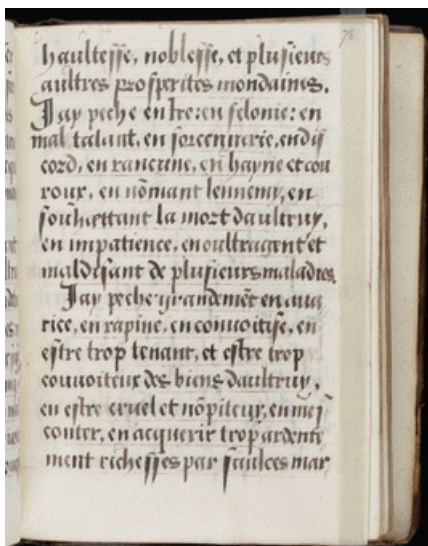 haultesse, noblesse, et plusieurs
aultres prosperites mondaines.
Jay peche en Ire: en felonie: en
mal talant, en forcennerie, en dis
cord, en rancune, en hayne et cou
roux, en nõmant lennemy, en
souhaettant la mort daultruy,
en impatience, en oultragent et
maldisant de plusieurs maladies.
Jay peche grandemẽt en ava
rice, en rapine, en convoitise, en
estre trop tenant, et estre trop
couvoiteux des biens daultruy,
en estre cruel et nõpiteux, en mes
conter, en acquerir trop ardente
ment richesses par faulces mar